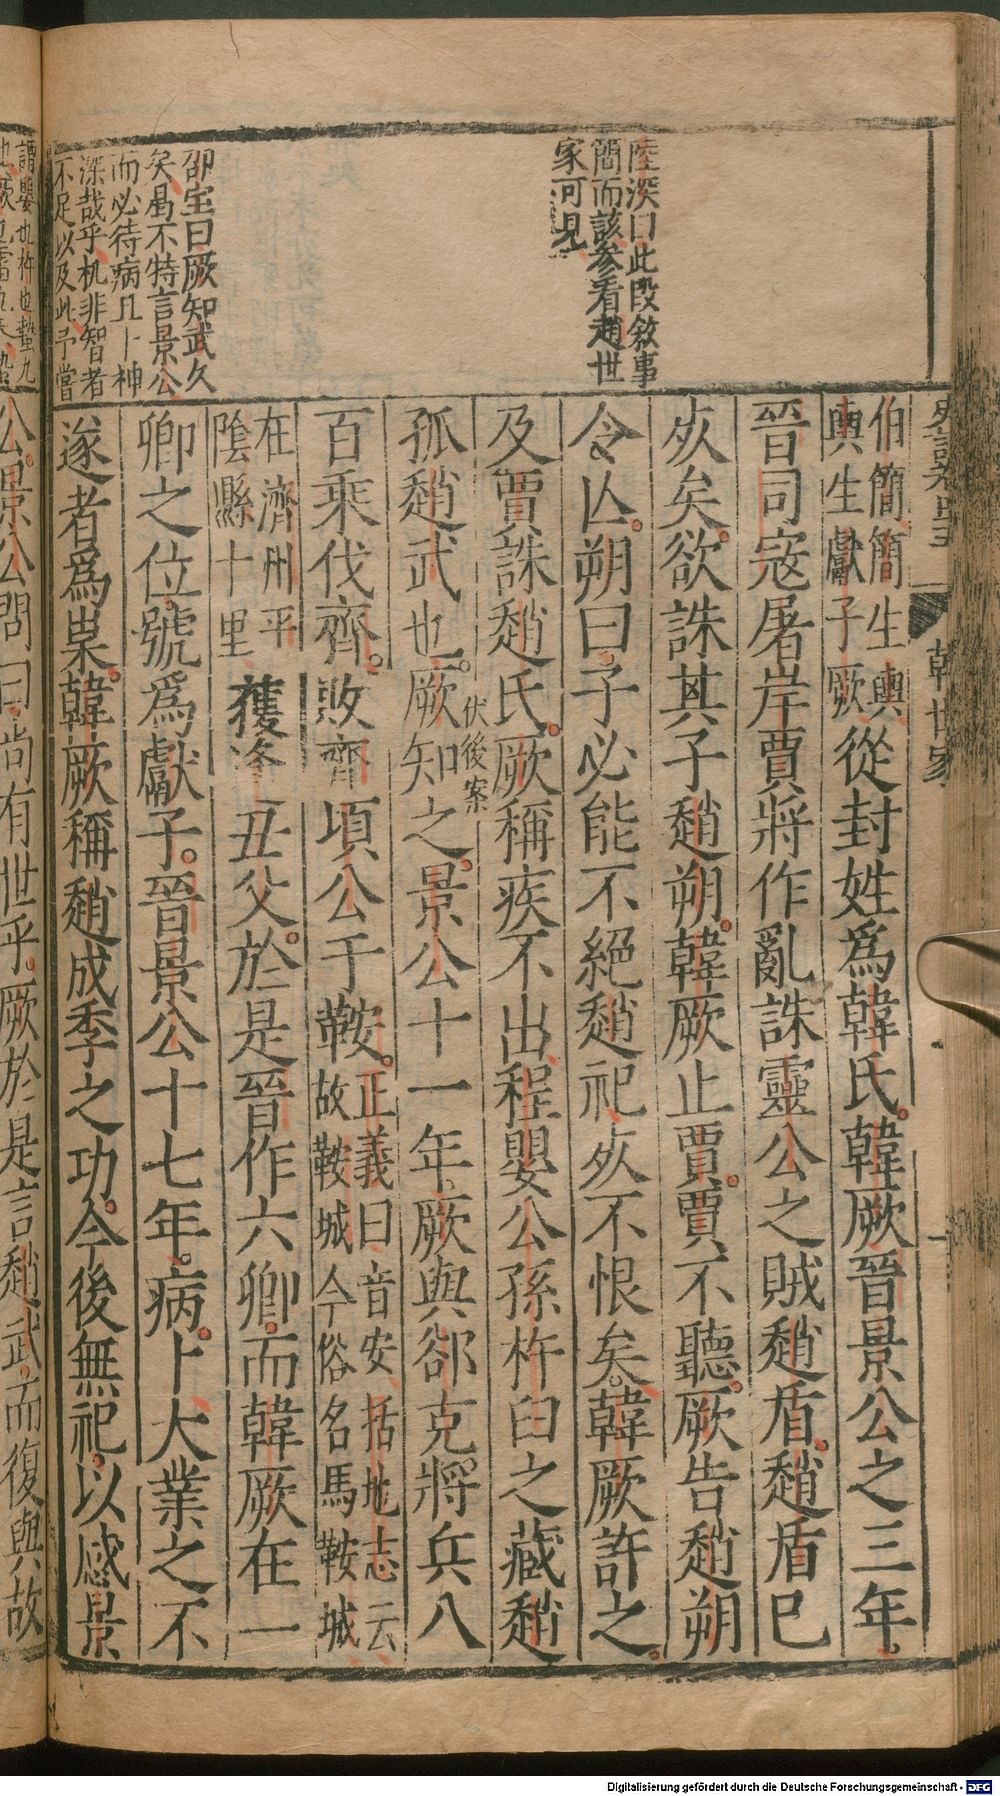 陸深曰此段敘事
簡而該參看趙世
家可見
卲宝曰厥知武久
矣曷不特言景公
而必待病且卜神
深哉乎机非智者
不足以及此予嘗
韓世家
伯簡簡生輿
輿生獻子厥從封姓爲韓氏韓厥晉景公之三年
晉司寇屠岸賈將作亂誅靈公之賊趙盾趙盾已
死矣欲誅其子趙朔韓厥止賈賈不聽厥告趙朔
令亾朔曰子必能不絕趙祀死不恨矣韓厥許之
及賈誅趙氏厥稱疾不出程嬰公孫杵臼之藏趙
伏後案
孤趙武也厥知之景公十一年厥與郤克將兵八
百乘伐齊敗齊頃公于鞍正義曰音安括地志云
故鞍城今俗名馬鞍城
在濟州平
陰縣十里獲逢丑父於是晉作六卿而韓厥在一
卿之位號爲獻子晉景公十七年病卜大業之不
遂者爲祟韓厥稱趙成季之功今後無祀以感景
公景公問曰尚有世乎厥於是言趙武而復與故
Digitalisierung gefördert durch die Deutsche Forschungsgemeinschaft - DFG